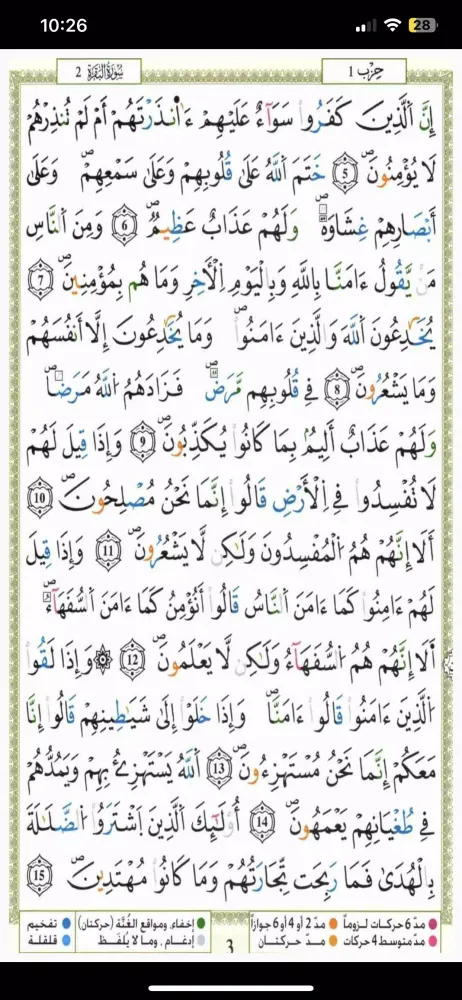 10:26
28
سُورَةُ البَقَرَةِ 2
حِزْب 1
إِنَّ ٱلَّذِينَ كَفَرُوا۟ سَوَآءٌ عَلَيْهِمْ ءَٰا۬نذَرْتَهُمْ أَمْ لَمْ تُنذِرْهُمْ
لَا يُؤْمِنُونَ صۖ 5 خَتَمَ ٱللَّهُ عَلَىٰ قُلُوبِهِمْ وَعَلَىٰ سَمْعِهِمْ صۖ وَعَلَىٰ
أَبْصَٰرِهِمْ غِشَٰوَةٌ صۖ وَلَهُمْ عَذَابٌ عَظِيمٌ صۖ 6 وَمِنَ ٱلنَّاسِ
مَنْ يَّقُولُ ءَامَنَّا بِاللَّهِ وَبِالْيَوْمِ ٱلْأَخِرِ وَمَا هُم بِمُؤْمِنِينَ صۖ 7
يُخَٰدِعُونَ ٱللَّهَ وَٱلَّذِينَ ءَامَنُوا۟ صۖ وَمَا يُخَٰدِعُونَ إِلَّا أَنفُسَهُمْ
وَمَا يَشْعُرُونَ صۖ 8 فِي قُلُوبِهِم مَّرَضٌ صۖ فَزَادَهُمُ ٱللَّهُ مَرَضًا صۖ
وَلَهُمْ عَذَابٌ أَلِيمٌ بِمَا كَانُوا۟ يُكَذِّبُونَ صۖ 9 وَإِذَا قِيلَ لَهُمْ
لَا تُفْسِدُوا۟ فِي ٱلْأَرْضِ قَالُوا۟ إِنَّمَا نَحْنُ مُصْلِحُونَ صۖ 10
أَلَا إِنَّهُمْ هُمُ ٱلْمُفْسِدُونَ وَلَٰكِن لَّا يَشْعُرُونَ صۖ 11 وَإِذَا قِيلَ
لَهُمْ ءَامِنُوا۟ كَمَا ءَامَنَ ٱلنَّاسُ قَالُوا۟ أَنُؤْمِنُ كَمَا ءَامَنَ ٱلسُّفَهَآءُ صۖ
أَلَا إِنَّهُمْ هُمُ ٱلسُّفَهَآءُ وَلَٰكِن لَّا يَعْلَمُونَ صۖ 12 ۞ وَإِذَا لَقُوا۟
ٱلَّذِينَ ءَامَنُوا۟ قَالُوا۟ ءَامَنَّا صۖ وَإِذَا خَلَوْا۟ إِلَىٰ شَيَٰطِينِهِمْ قَالُوا۟ إِنَّا
مَعَكُمْ إِنَّمَا نَحْنُ مُسْتَهْزِءُونَ صۖ 13 ٱللَّهُ يَسْتَهْزِئُ بِهِمْ وَيَمُدُّهُمْ
فِي طُغْيَٰنِهِمْ يَعْمَهُونَ صۖ 14 أُو۟لَٰٓئِكَ ٱلَّذِينَ ٱشْتَرَوُا۟ ٱلضَّلَٰلَةَ
بِالْهُدَىٰ فَمَا رَبِحَت تِّجَٰرَتُهُمْ وَمَا كَانُوا۟ مُهْتَدِينَ صۖ 15
مدّ 6 حركات لزوماً مدّ 2 أو 4 أو 6 جوازاً إخفاء، ومواقع الغُنَّة (حركتان) تفخيم
مدّ متوسط 4 حركات مدّ حركتان 3 إدغام، وما لا يُلفَظ قلقلة